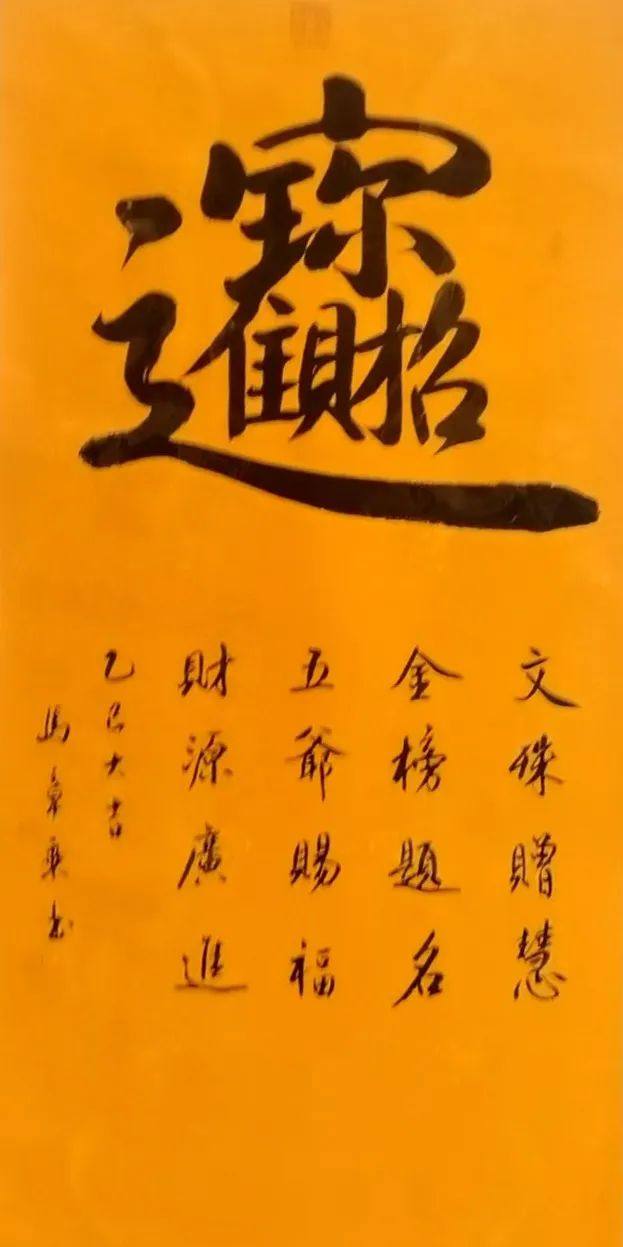 招財進寶
文殊贈慧
金榜題名
五爺賜福
財源廣進
乙巳大吉
馬章乘书